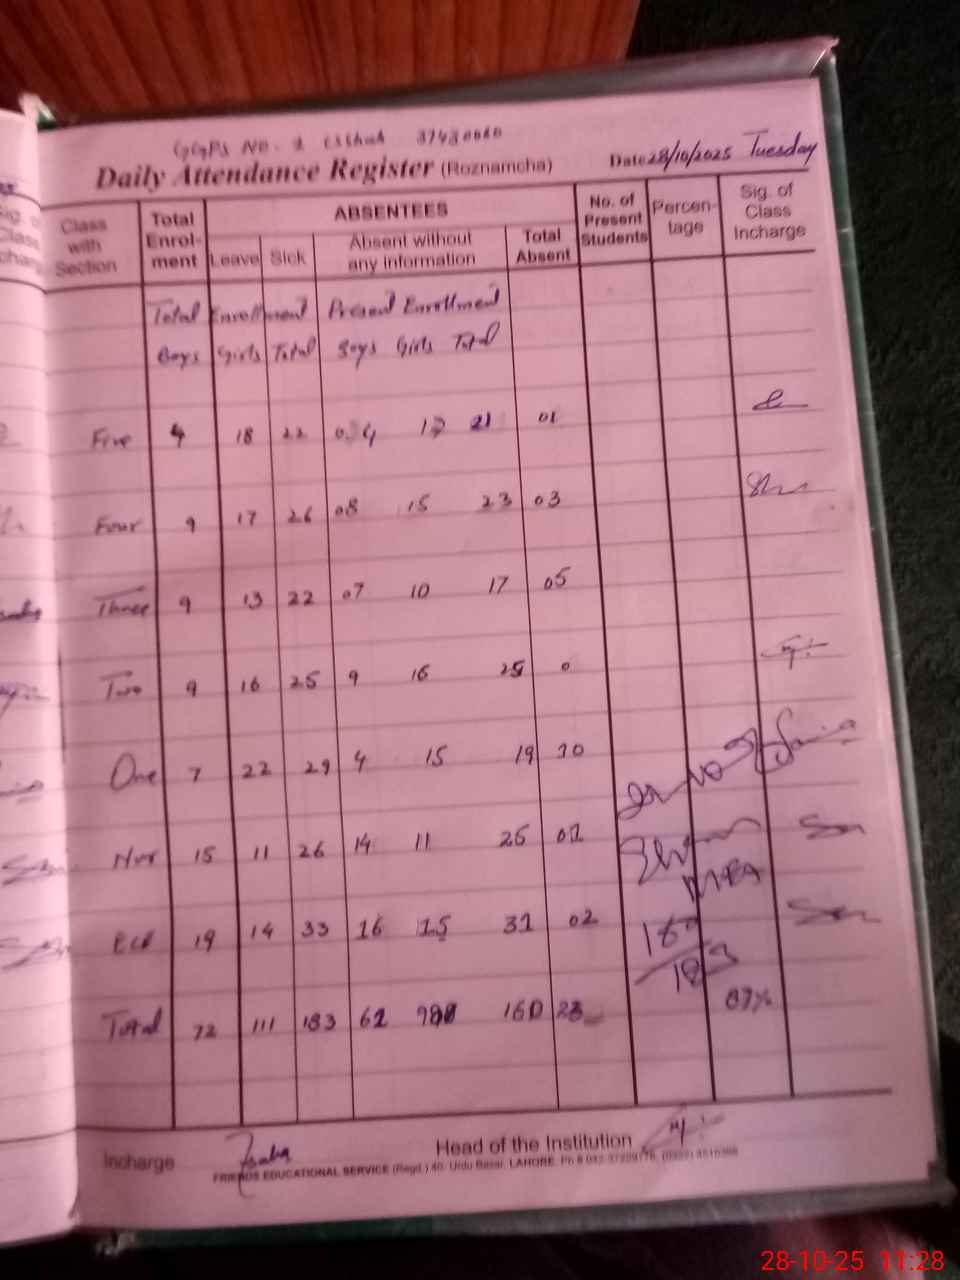 GGPS No. 1 37430080
Daily Attendance Register (Roznamcha) Date 28/10/2025 Tuesday
Class with Section
Total Enrol-ment
ABSENTEES
Leave Sick Absent without any information Total Absent
No. of Present Students
Percen-tage
Sig. of Class Incharge
Total Enrollment Present Enrollment
Boys Girls Total Boys Girls Total
Five 4 18 22 04 17 21 01
Four 9 17 26 08 15 23 03
Three 9 13 22 07 10 17 05
Two 9 16 25 9 16 25 0
One 7 22 29 4 15 19 10
Nur 15 11 26 14 11 25 01
ECE 19 14 33 16 15 31 02
MEA
160
183
87%
Total 72 111 183 62 160 23
Incharge Head of the Institution
FRIENDS EDUCATIONAL SERVICE (Regd.) 40, Urdu Bazar, LAHORE.
28-10-25 11:28